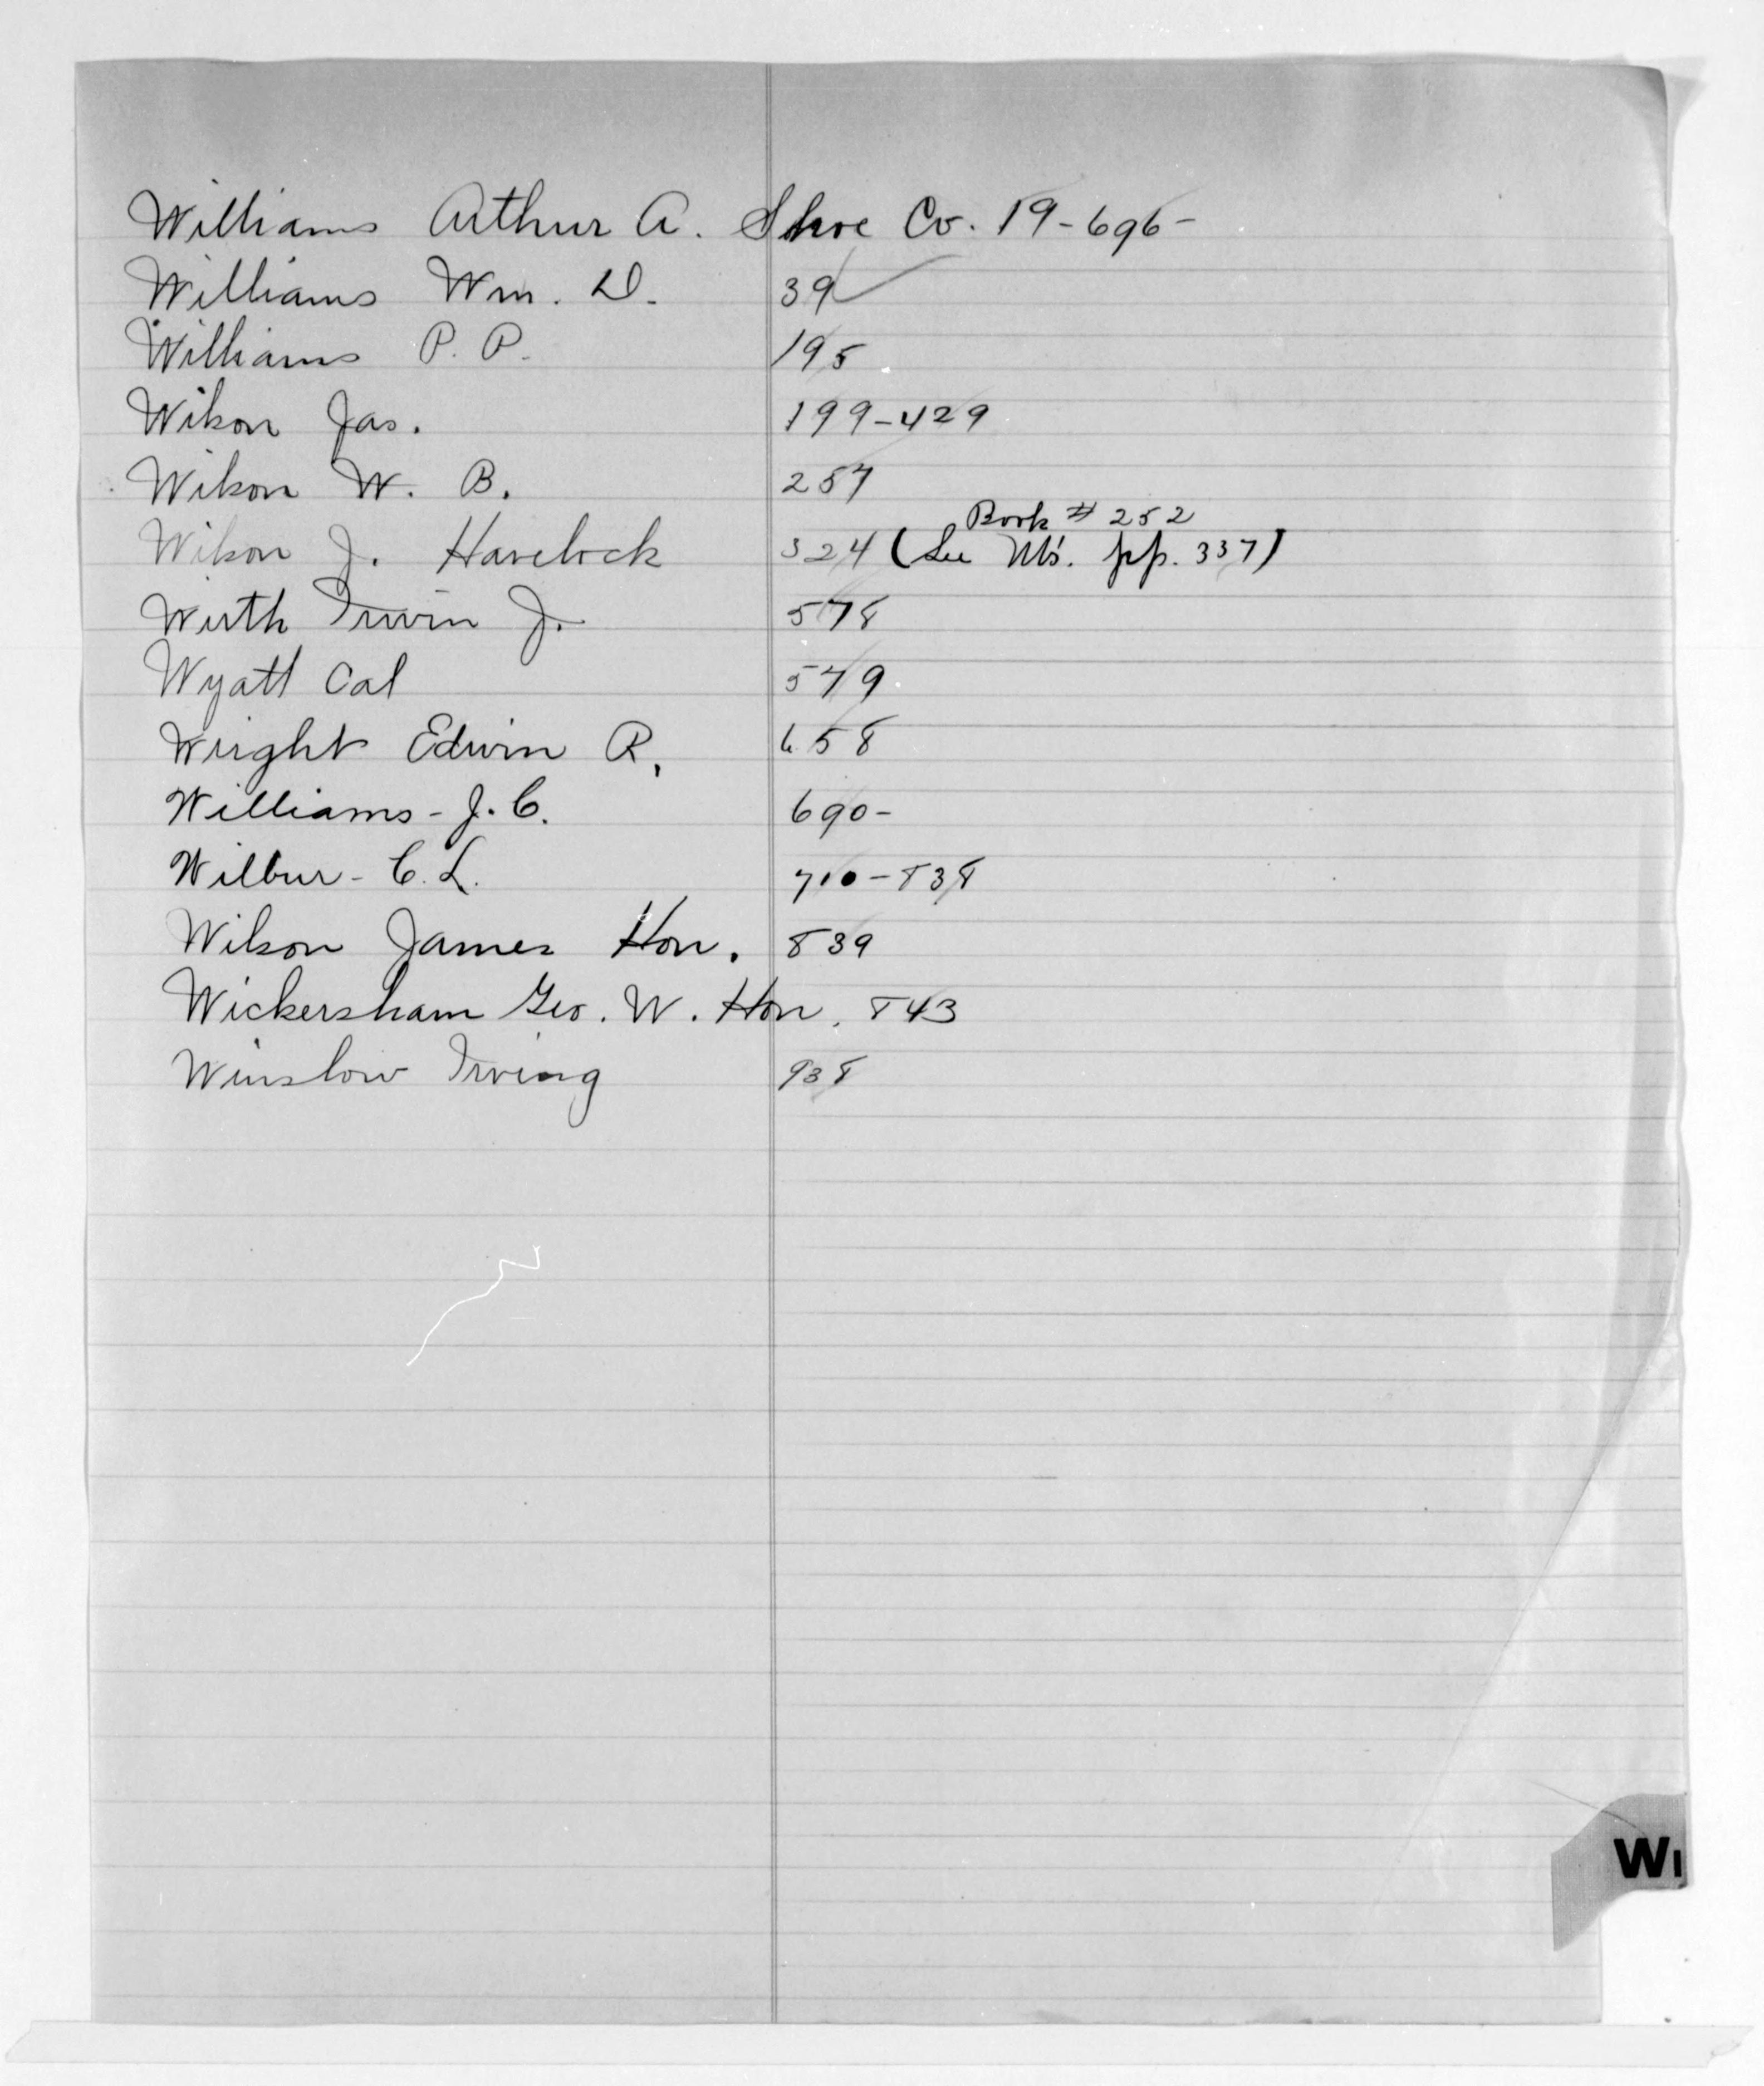 Williams Arthur A. Shoe Co. 19-696-
Williams Wm. D. 39
Williams P. P. 195
Wilson Jas. 199-429
Wilson W. B. 257
Book # 252
Wilson J. Havelock 324 (See Ms. pp. 337)
Wirth Irwin J. 578
Wyatt Cal 579
Wright Edwin R. 658
Williams - J. C. 690-
Wilbur - C. L. 710-838
Wilson James Hon. 839
Wickersham Geo. W. Hon. 843
Winslow Irving 938
WI